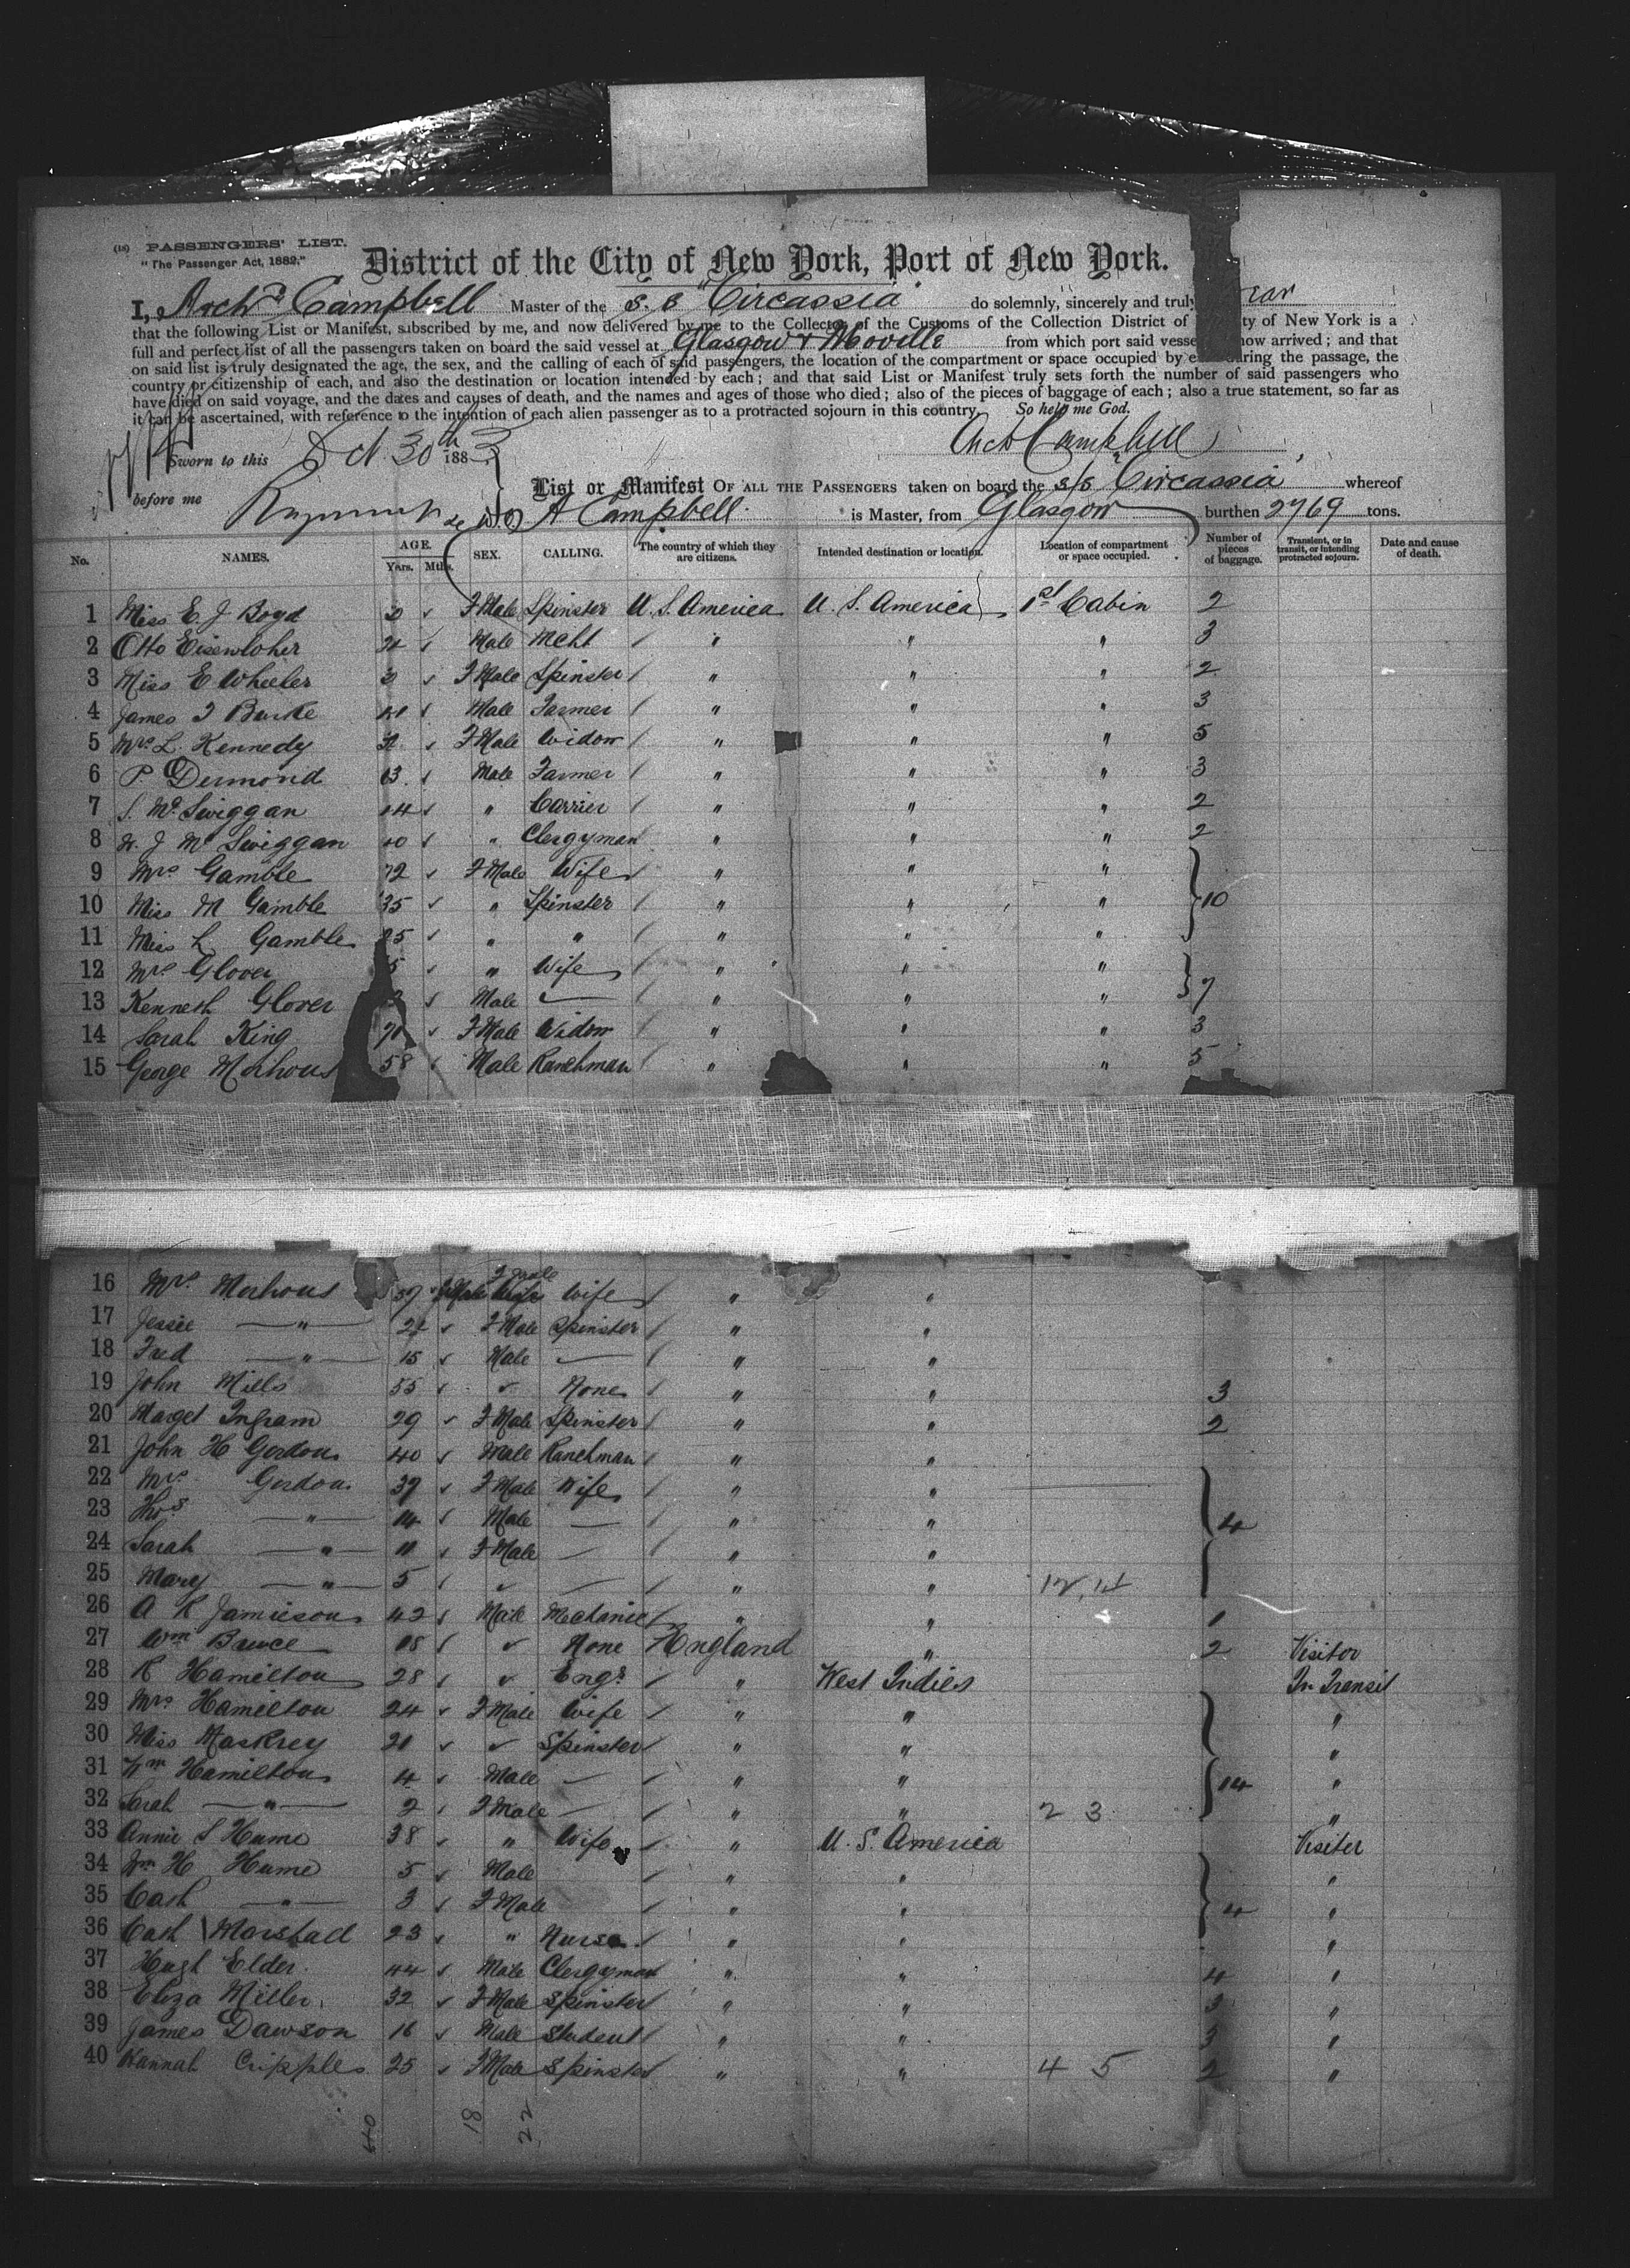 (18) PASSENGERS' LIST.
"The Passenger Act, 1882."
District of the City of New York, Port of New York.
I, Archd Campbell Master of the S.S "Circassia" do solemnly, sincerely and truly
that the following List or Manifest, subscribed by me, and now delivered by me to the Collector of the Customs of the Collection District of ty of New York is a
full and perfect list of all the passengers taken on board the said vessel at Glasgow & Moville from which port said vesse now arrived; and that
on said list is truly designated the age, the sex, and the calling of each of said passengers, the location of the compartment or space occupied by e during the passage, the
country or citizenship of each, and also the destination or location intended by each; and that said List or Manifest truly sets forth the number of said passengers who
have died on said voyage, and the dates and causes of death, and the names and ages of those who died; also of the pieces of baggage of each; also a true statement, so far as
it can be ascertained, with reference to the intention of each alien passenger as to a protracted sojourn in this country. So help me God.
Arch Campbell
Sworn to this Oct 30th 1883
before me
List or Manifest OF ALL THE PASSENGERS taken on board the s/s Circassia whereof
A Campbell is Master, from Glasgow burthen 2769 tons.
No. NAMES. AGE. Yrs. Mths. SEX. CALLING. The country of which they are citizens. Intended destination or location. Location of compartment or space occupied. Number of pieces of baggage. Transient, or in transit, or intending protracted sojourn. Date and cause of death.
1 Miss E. J Boyd F Male Spinster U. S. America U. S. America 1st Cabin 2
2 Otto Male Mcht " " " 3
3 Miss E Wheeler F Male Spinster " " " 2
4 James Burke Male Farmer " " " 3
5 Mrs L. Kennedy F Male Widow " " " 5
6 P. Dermond Male Farmer " " " 3
7 S. Mc Swiggan " Carrier " " " 2
8 J Mc Swiggan " Clergyman " " " 2
9 Mrs Gamble 72 F Male Wife " " "
10 Miss M Gamble 35 " Spinster " " " 10
11 Miss L Gamble " " " " "
12 Mrs Glover " Wife " " "
13 Kenneth Glover Male " " " 7
14 Sarah King F Male Widow " " " 3
15 George Male Ranchman " " " 5
16 Mrs F Male Wife " "
17 Jessie " F Male Spinster " "
18 Fred " 15 Male " "
19 John Mills 55 None " " 3
20 Marget Ingram 29 F Male Spinster " " 2
21 John H Gordon 40 Male Ranchman " "
22 Mrs Gordon 39 F Male Wife " "
23 Thos " 14 Male " " 4
24 Sarah " 11 F Male " "
25 Mary " 5 " "
26 A R Jamieson 42 Male Mechanic " " 1
27 Wm Bruce None England " 2 Visitor
28 R Hamilton 28 Engr " West Indies In Transit
29 Mrs Hamilton 24 F Male Wife " " "
30 Miss Spinster " " "
31 Wm Hamilton 4 Male " " 14 "
32 Sarah " 2 F Male " " 2 3 "
33 Annie S Hume 38 " Wife " U. S. America Visiter
34 Wm H Hume 5 Male " " "
35 Cath " 3 F Male " " 4 "
36 Cath Marshall 23 " Nurse " " "
37 Hugh Elder 44 Male Clergyman " " 4 "
38 Eliza Miller 32 F Male Spinster " " 3 "
39 James Dawson 16 Male Student " " 3 "
40 Hannah Cripples 25 F Male Spinster " " 4 5 2 "
40 18 22